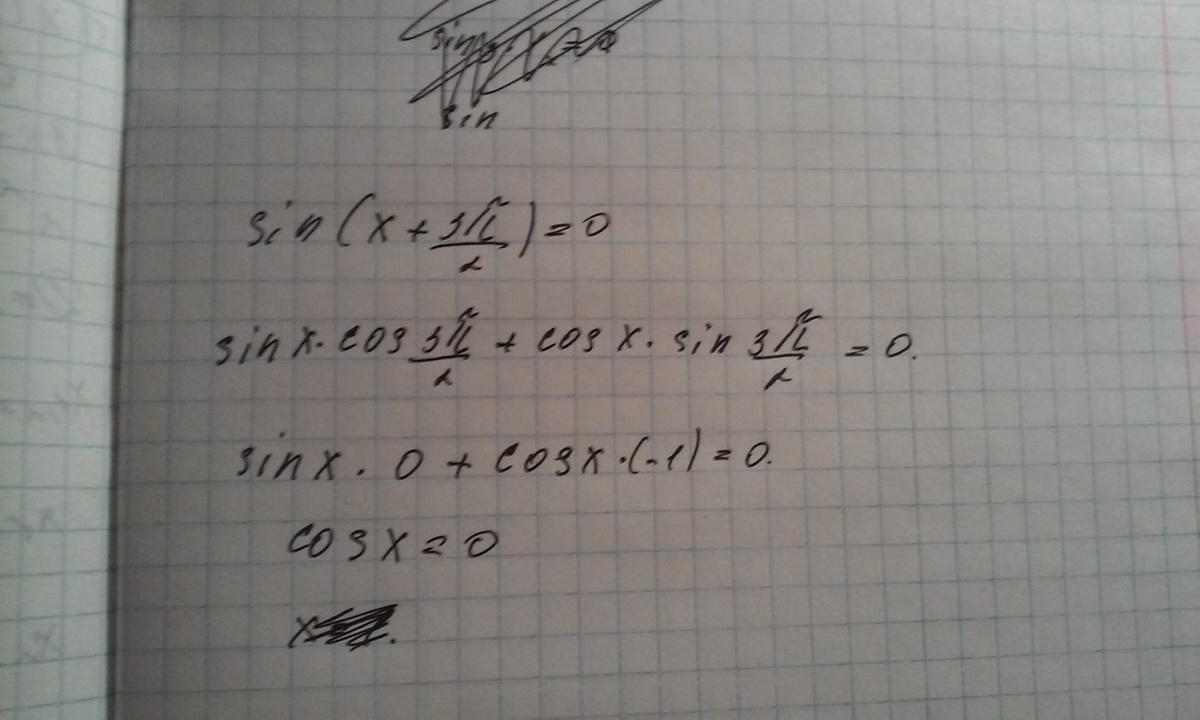 sin
sin(x + 3π/2) = 0
sin x · cos 3π/2 + cos x · sin 3π/2 = 0.
sin x · 0 + cos x · (-1) = 0.
cos x = 0
x